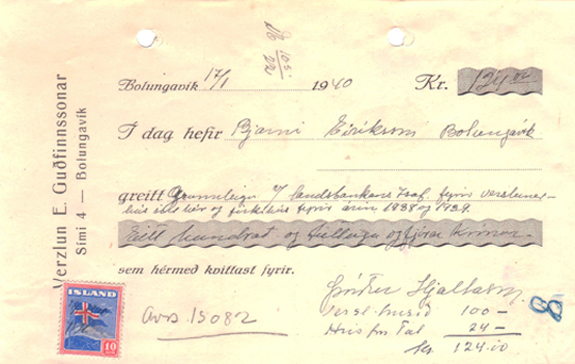 Verzlun E. Guðfinnssonar
Sími 4 — Bolungavík
Bolungavík 17/1 1940 Kr. 124.00
Í dag hefir Bjarni Eiríksson Bolungavík
greitt Grunnleigu t/ landsbankans Ísaf. fyrir verzlunar-
hús sitt hér og fiskihús fyrir árin 1938 og 1939.
Eitt hundrað og tuttugu og fjórar krónur
sem hérmeð kvittast fyrir.
Hjaltason
Verzl.húsið 100 —
24 —
kr. 124.00
ÍSLAND
10
Avs 15082
8